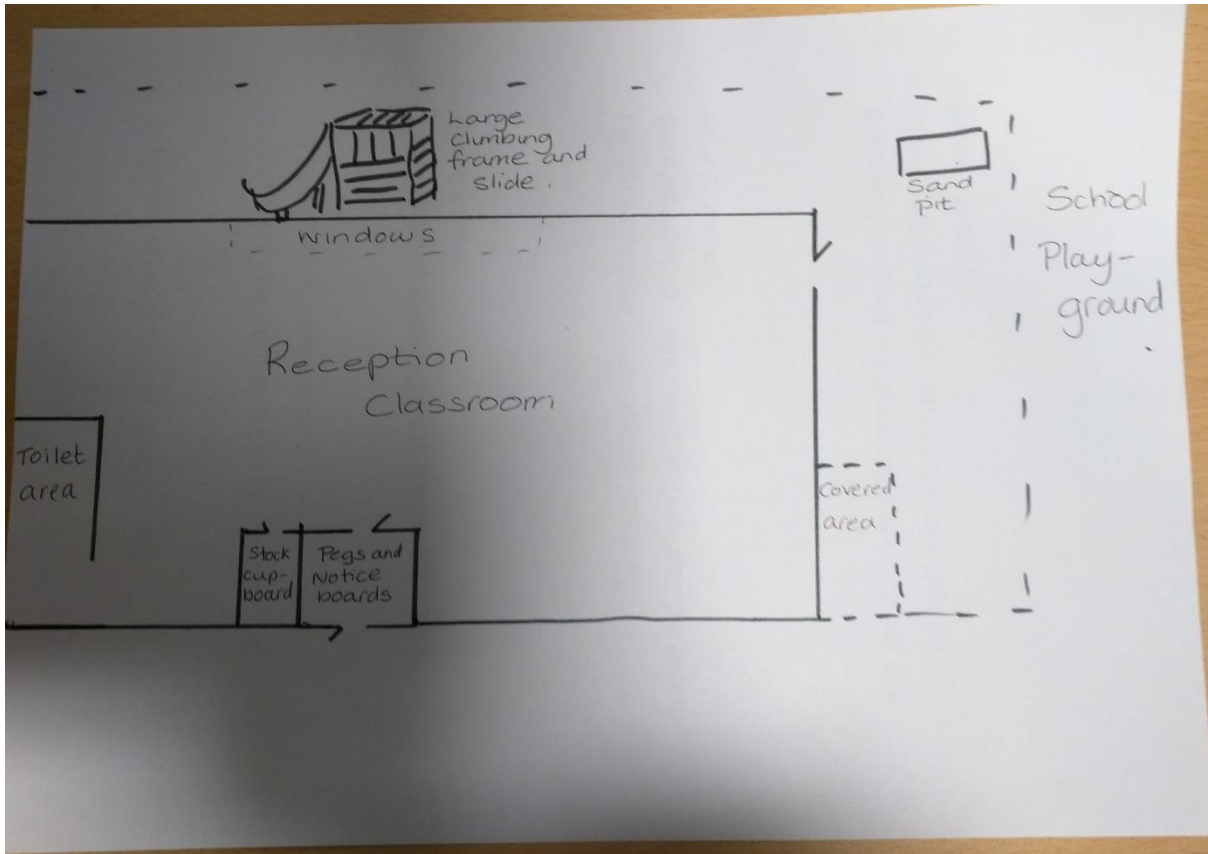 Large
climbing
frame and
slide.
Sand
pit
School
Play-
ground
windows
Reception
Classroom
Toilet
area
Stock
cup-
board
Pegs and
Notice
boards
Covered
area